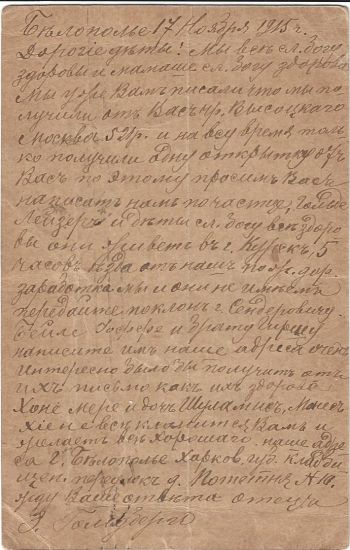 Бѣлополье 17 Ноября 1915 г.
Дорогіе дѣты! Мы всѣ сл. богу
здоровы и мамаше сл. богу здорова
Мы уже Вамъ писали что мы по
лучили отъ Васъ чр. Высоцкаго
Москвѣ 52 р. и на всу время толь
ко получили одну открытку отъ
Васъ по этому просимъ Васъ
написать намъ почасте,
Лейзеръ и дѣты сл. Богу всѣ здоро
вы они живетъ въ г. Курскъ, 5
часовъ езда отъ насъ по ж. дор.
заработка мы и они не имѣемъ
передайте поклонъ г. Сендеровичу
Бейле и брату Гиршу
напишите имъ наше адреса очень
интересно было бы получить отъ
ихъ письмо какъ ихъ здоровѣ
Хоне мере и дочь Шуламисъ,
Хіе и всѣ кланится Вамъ и
желаетъ всѣ хорошаго. наше адре
са г. Бѣлополье Харков. губ. кладби
щен. переулокъ д. № 10.
жду Ваше отвѣта отецъ
Голдберго